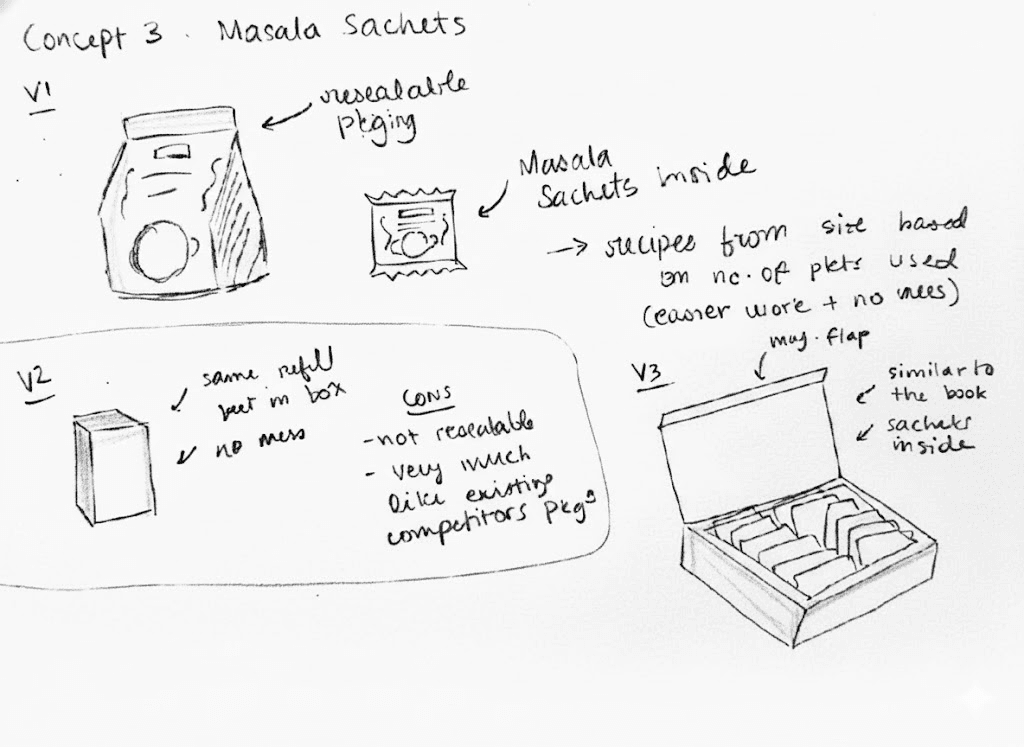 Concept 3 . Masala Sachets
V1
resealable
pkging
Masala
Sachets inside
→ recipes from size based
on no. of pkts used
(easier work + no mess)
V2
same refill
but in box
no mess
CONS
- not resealable
- very much
like existing
competitors pkg
V3
mag. flap
similar to
the book
sachets
inside